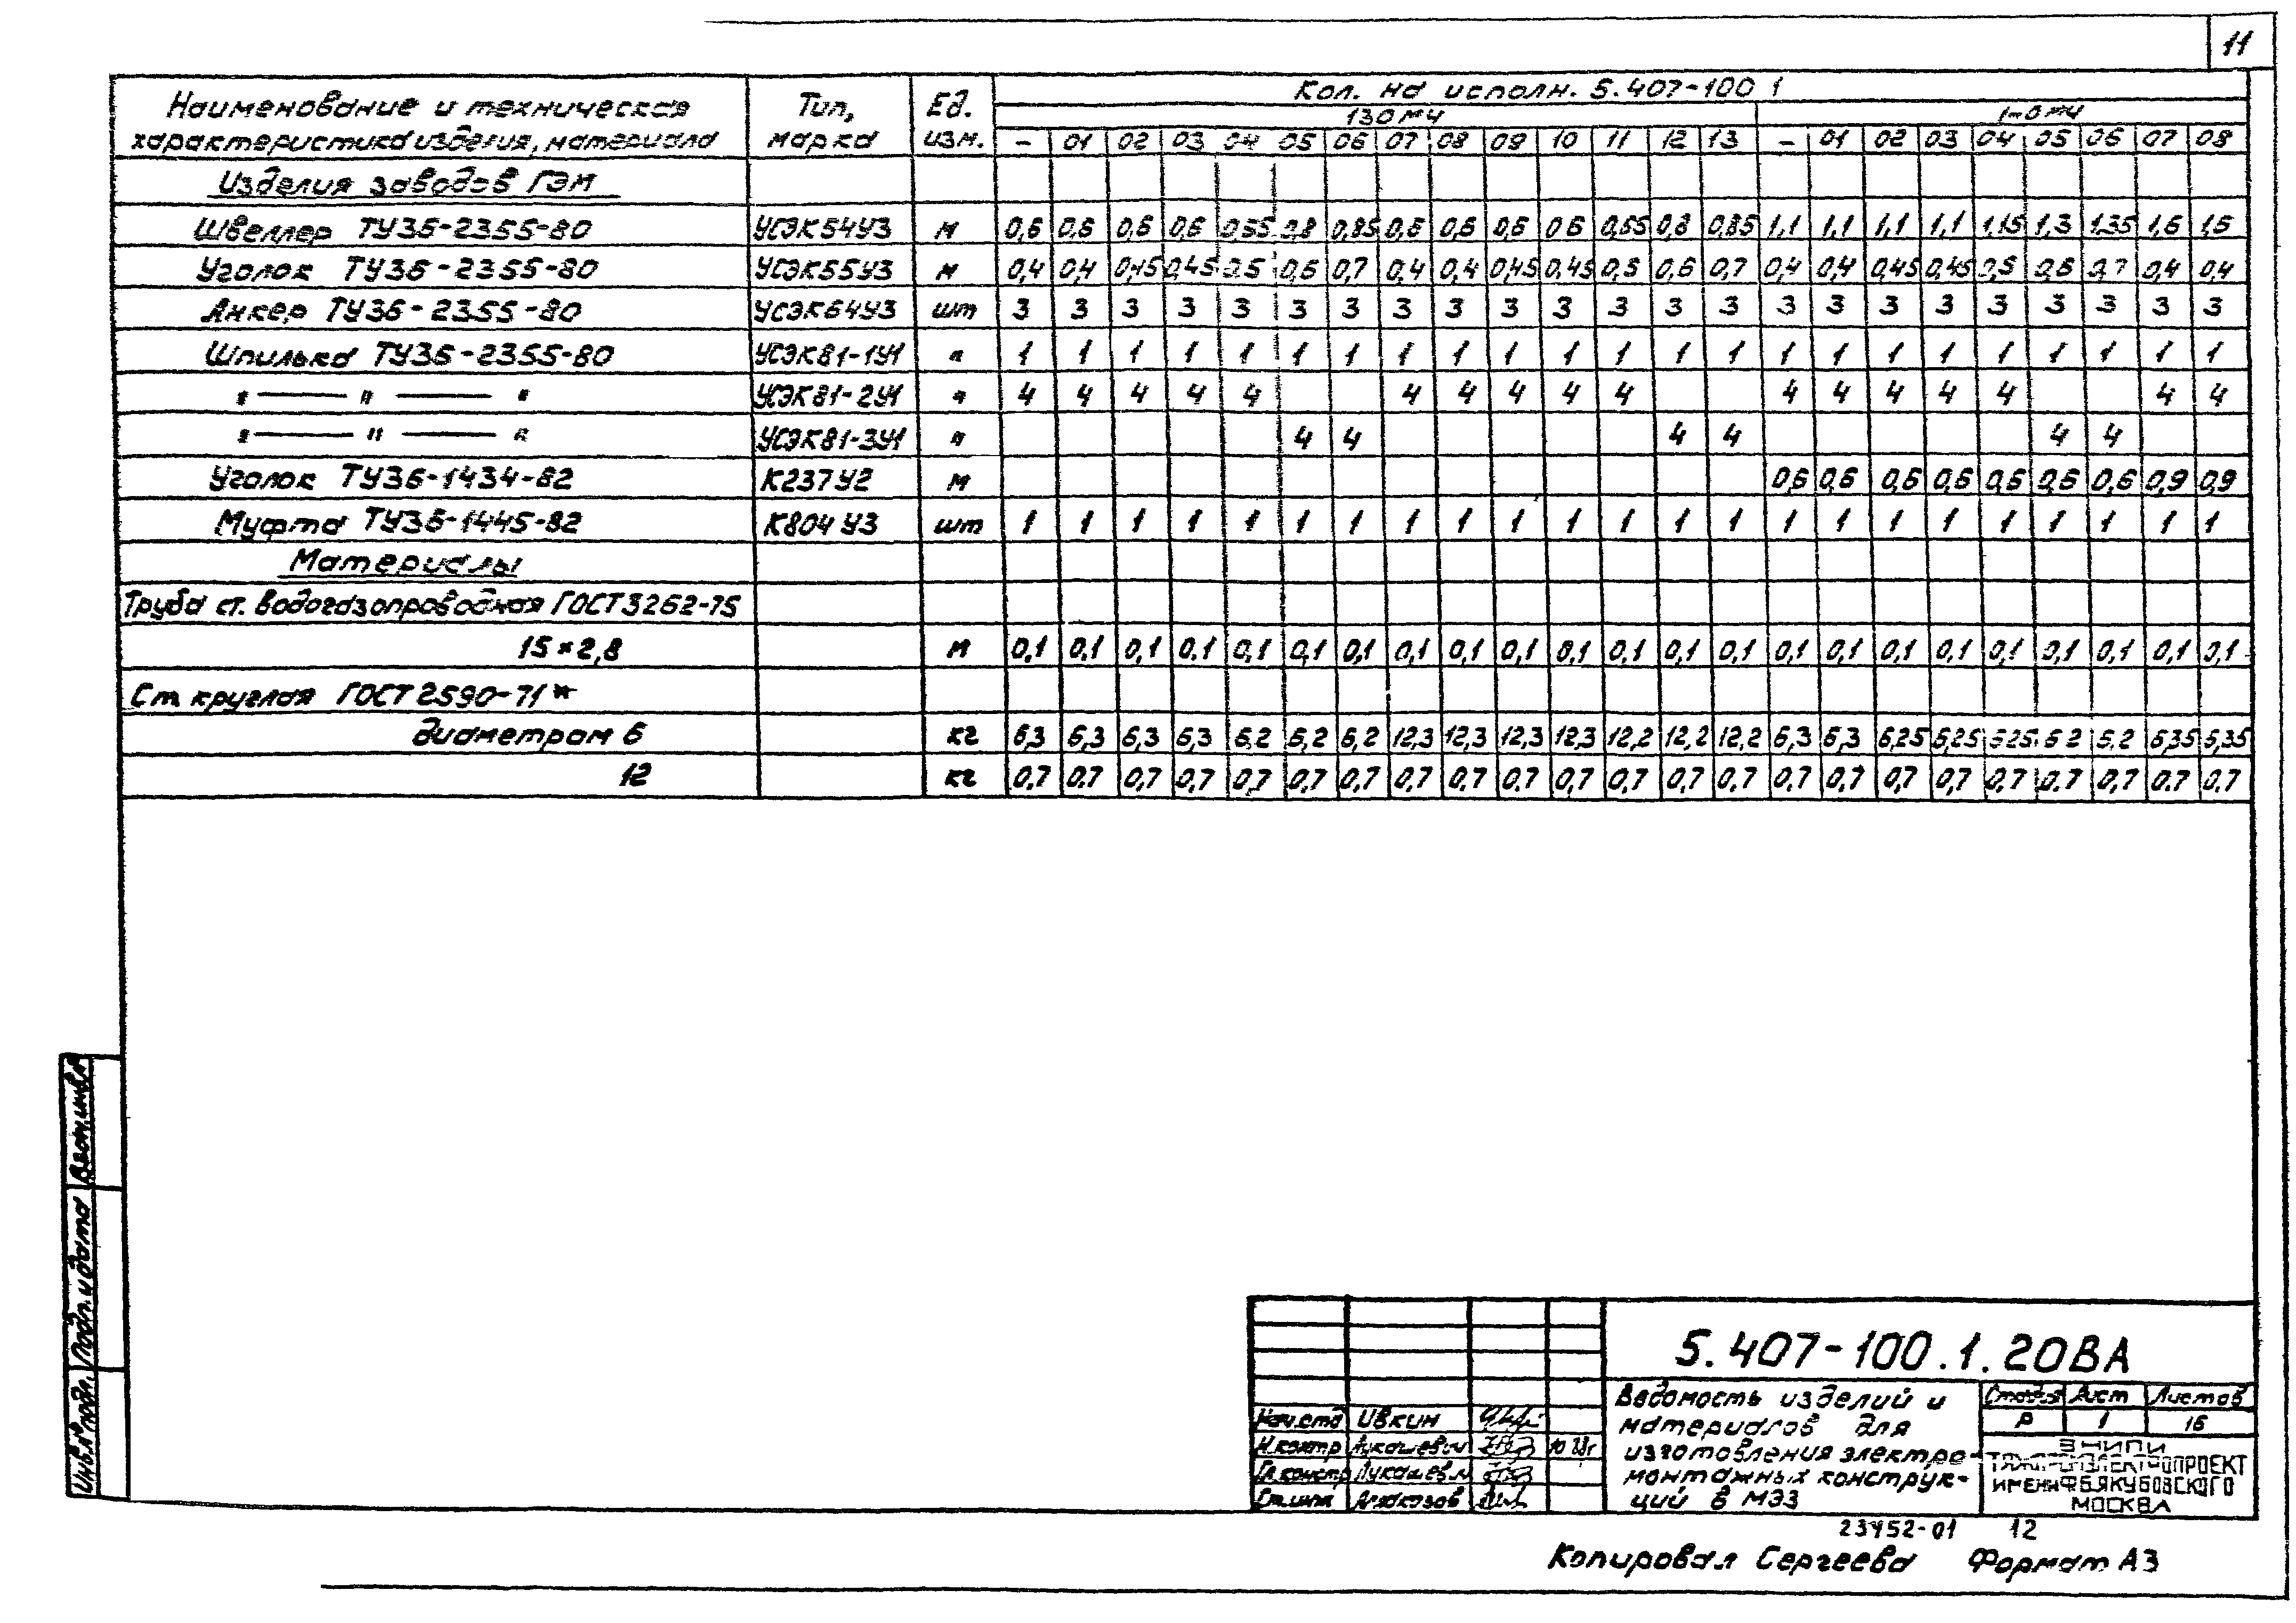 11
Наименование и техническая характеристика изделия, материала Тип, марка Ед. изм. Кол. на исполн. 5.407-100 1
130МЧ
– 01 02 03 04 05 06 07 08 09 10 11 12 13 – 01 02 03 04 05 06 07 08
Изделия заводов ГЭМ
Швеллер ТУ36-2355-80 УСЭК54У3 м 0,6 0,6 0,6 0,6 0,65 0,8 0,85 0,6 0,6 0,6 0,6 0,65 0,8 0,85 1,1 1,1 1,1 1,1 1,15 1,3 1,35 1,6 1,6
Уголок ТУ36-2355-80 УСЭК55У3 м 0,4 0,4 0,45 0,45 0,5 0,6 0,7 0,4 0,4 0,45 0,45 0,5 0,6 0,7 0,4 0,4 0,45 0,45 0,5 0,6 0,7 0,4 0,4
Анкер ТУ36-2355-80 УСЭК64У3 шт 3 3 3 3 3 3 3 3 3 3 3 3 3 3 3 3 3 3 3 3 3 3 3
Шпилька ТУ36-2355-80 УСЭК81-1У1 " 1 1 1 1 1 1 1 1 1 1 1 1 1 1 1 1 1 1 1 1 1 1 1
" — " — " УСЭК81-2У1 " 4 4 4 4 4 4 4 4 4 4 4 4 4 4 4 4 4
" — " — " УСЭК81-3У1 " 4 4 4 4 4 4
Уголок ТУ36-1434-82 К237У2 м 0,6 0,6 0,6 0,6 0,6 0,6 0,6 0,9 0,9
Муфта ТУ36-1445-82 К804У3 шт 1 1 1 1 1 1 1 1 1 1 1 1 1 1 1 1 1 1 1 1 1 1 1
Материалы
Труба ст. водогазопроводная ГОСТ3262-75
15×2,8 м 0,1 0,1 0,1 0,1 0,1 0,1 0,1 0,1 0,1 0,1 0,1 0,1 0,1 0,1 0,1 0,1 0,1 0,1 0,1 0,1 0,1 0,1 0,1
Ст круглая ГОСТ 2590-71*
диаметром 6 кг 6,3 6,3 6,3 6,3 6,2 6,2 6,2 12,3 12,3 12,3 12,3 12,2 12,2 12,2 6,3 6,3 6,25 6,25 6,25 6,2 6,2 6,35 6,35
12 кг 0,7 0,7 0,7 0,7 0,7 0,7 0,7 0,7 0,7 0,7 0,7 0,7 0,7 0,7 0,7 0,7 0,7 0,7 0,7 0,7 0,7 0,7 0,7
Инв.№подл. Подп. и дата Взам.инв.№
5.407-100.1.20ВА
Ведомость изделий и
материалов для
изготовления электро-
монтажных конструк-
ций в МЭЗ
Стадия Лист Листов
Р 1 16
ВНИПИ
ТЯЖПРОМЭЛЕКТРОПРОЕКТ
ИМЕНИ Ф.Б.ЯКУБОВСКОГО
МОСКВА
Нач.отд Ивкин
Н.контр Лукашевич
Гл.констр Лукашевич
Ст.инж
23452-01 12
Копировал Сергеева Формат А3